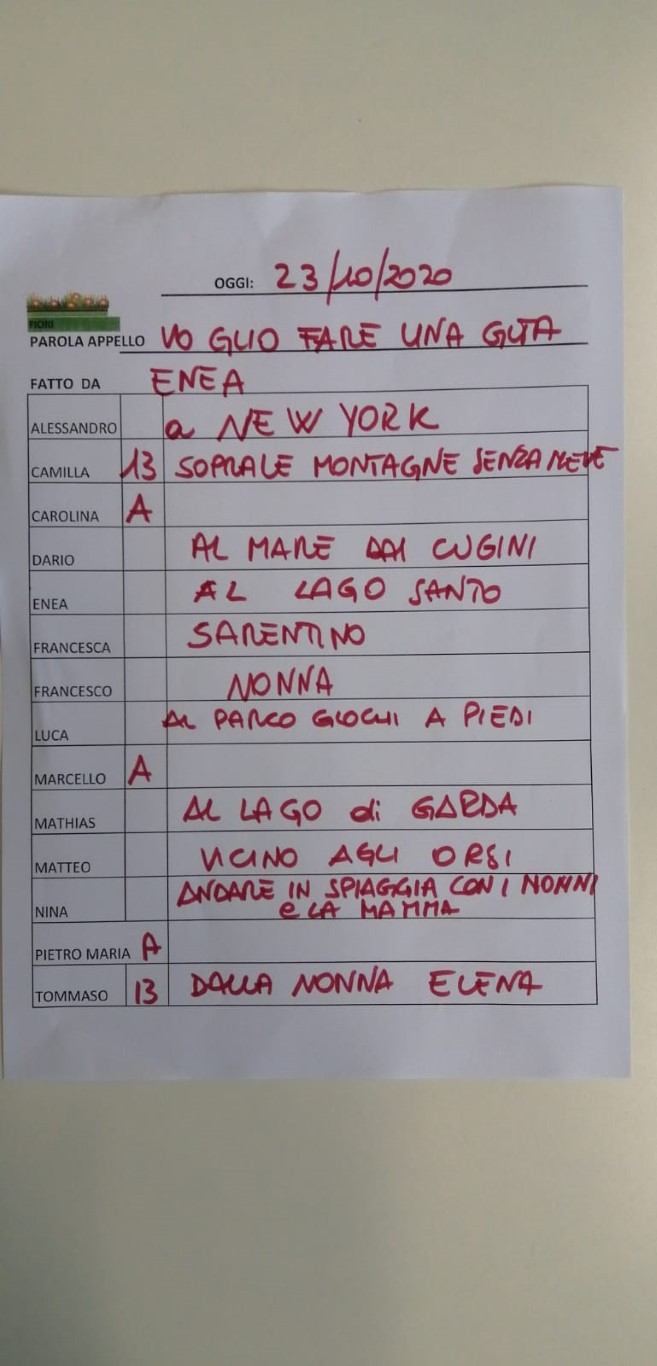 OGGI: 23/10/2020
FIORI
PAROLA APPELLO VO GLIO FARE UNA GITA
FATTO DA ENEA
ALESSANDRO a NEW YORK
CAMILLA 13 SOPRA LE MONTAGNE SENZA NEVE
CAROLINA A
DARIO AL MARE DAI CUGINI
ENEA AL LAGO SANTO
FRANCESCA SARENTINO
FRANCESCO NONNA
LUCA AL PARCO GIOCHI A PIEDI
MARCELLO A
MATHIAS AL LAGO di GARDA
MATTEO VICINO AGLI ORSI
NINA ANDARE IN SPIAGGIA CON I NONNI
e LA MAMMA
PIETRO MARIA A
TOMMASO 13 DALLA NONNA ELENA